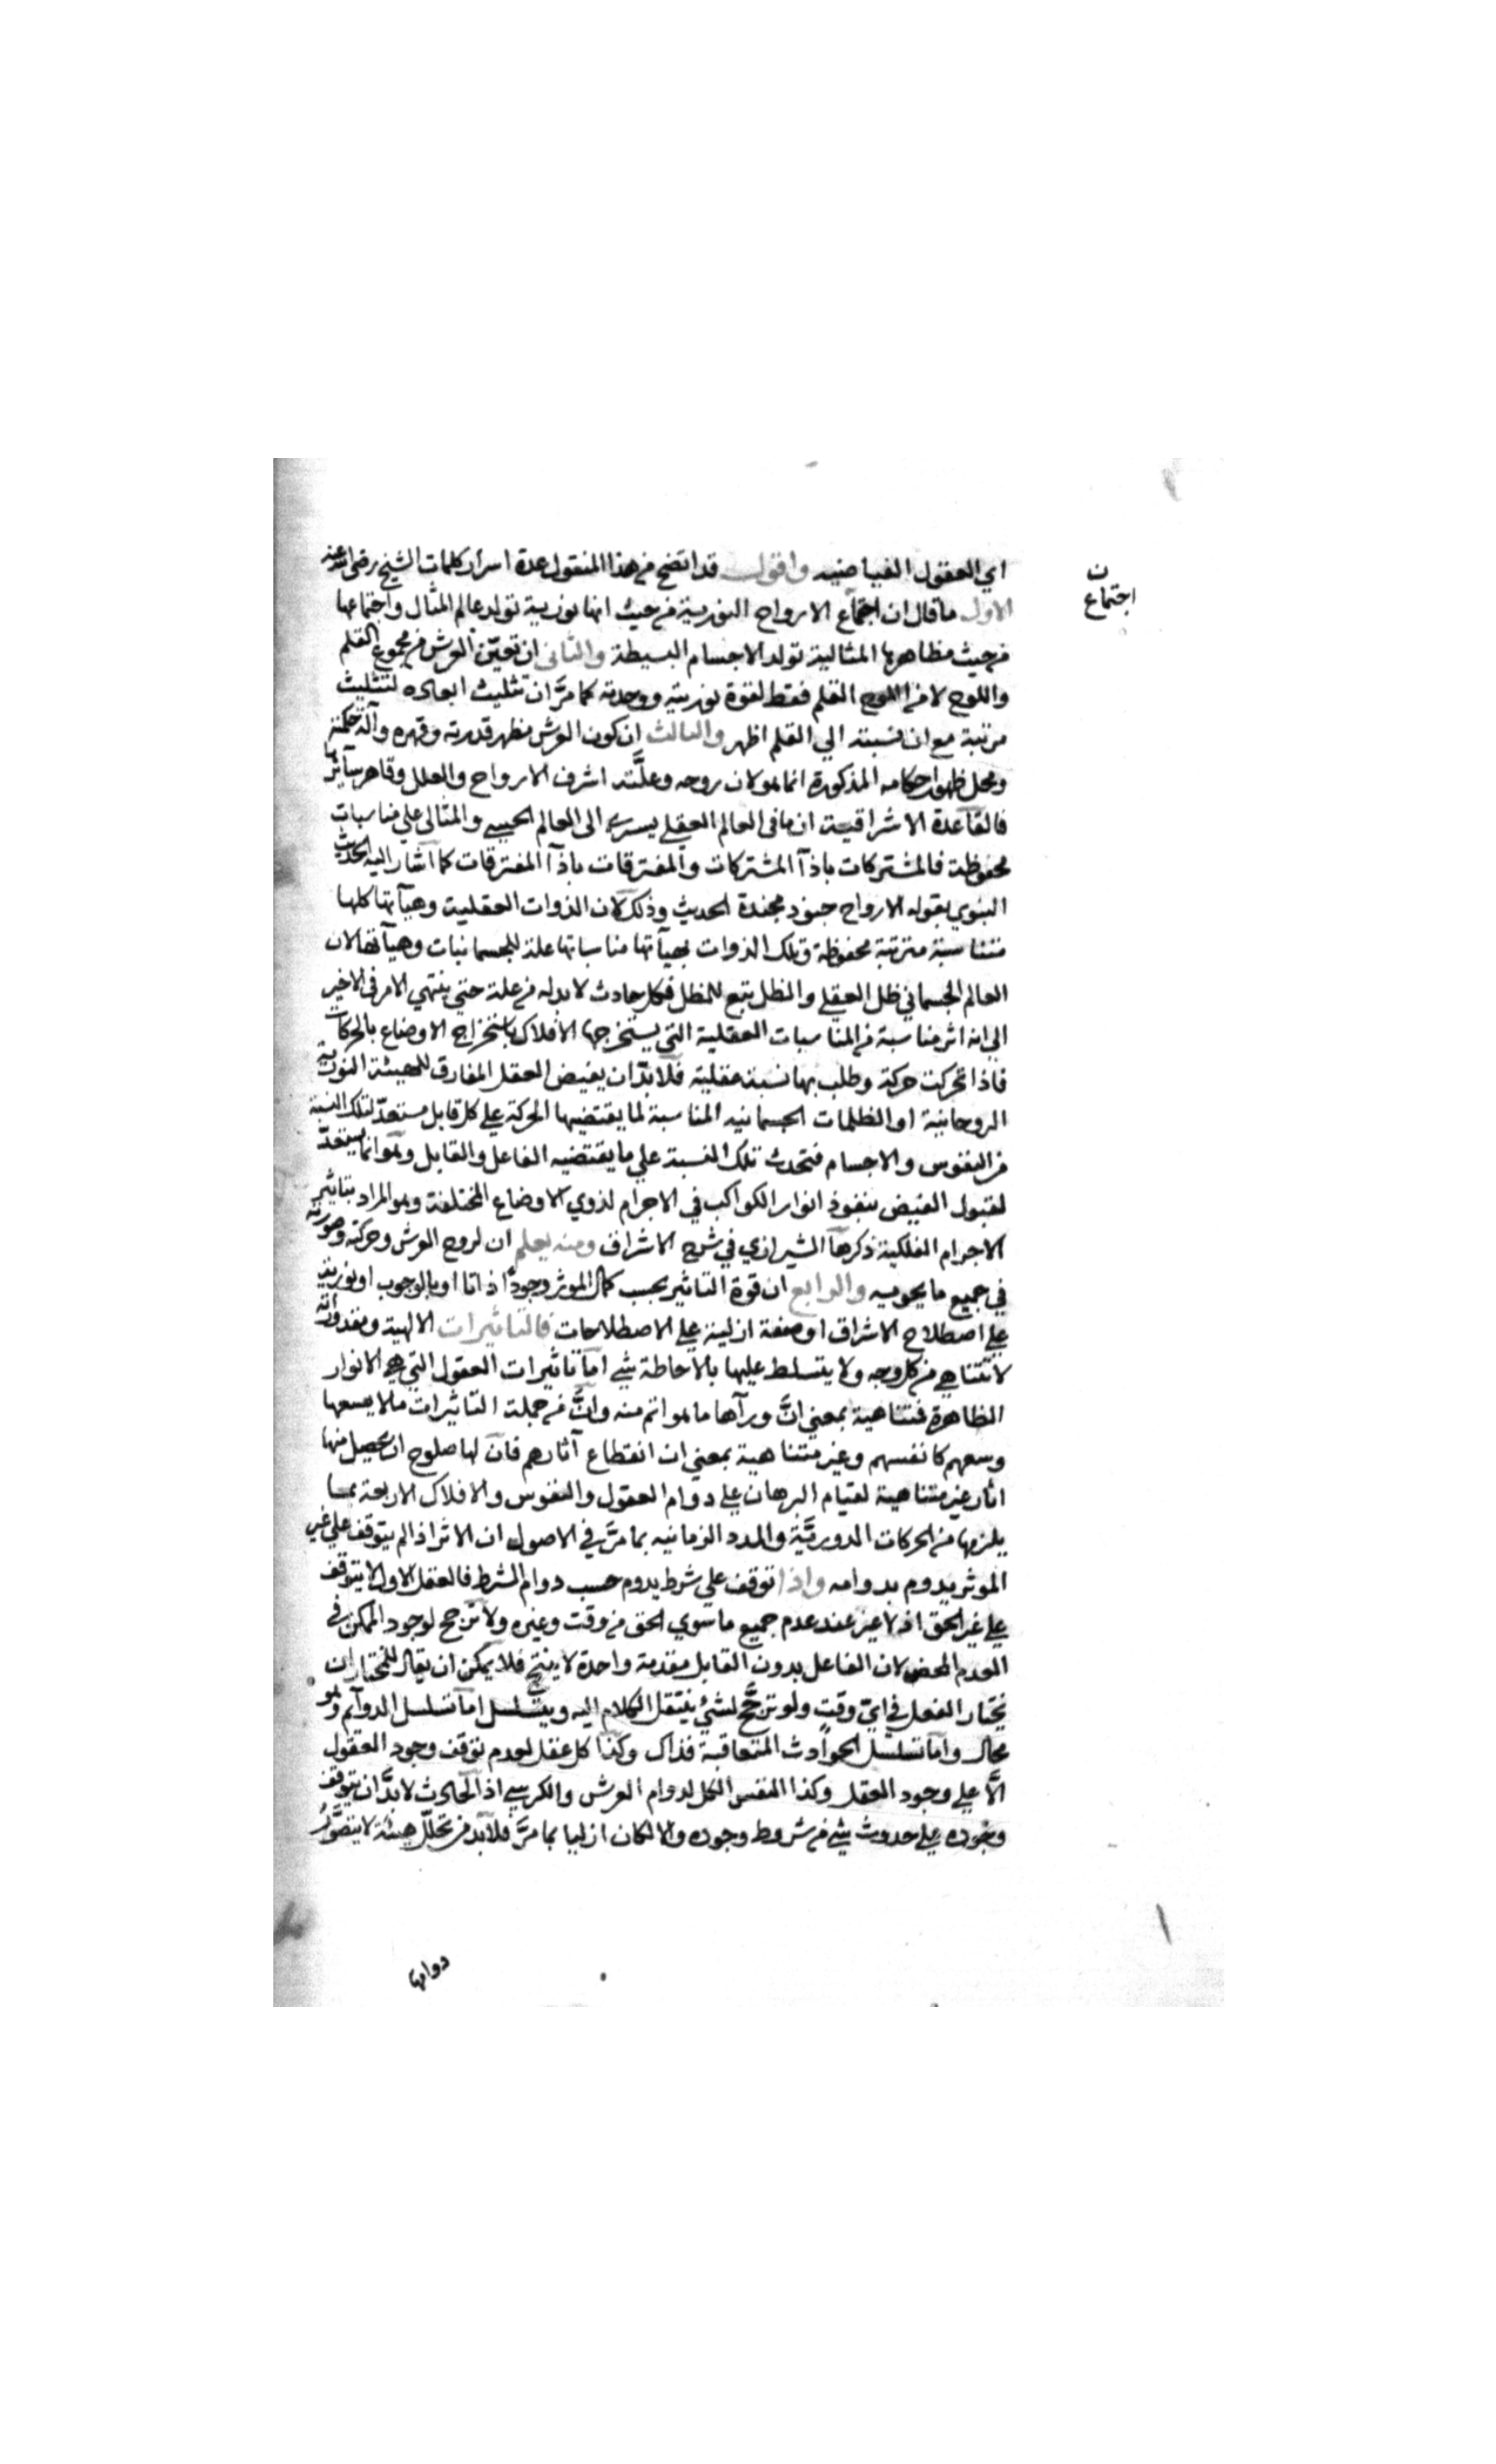 اي العقول الفياضيه واقول قد اتضح من هذا المنقول عدة اسرار كلمات الشيخ رضي الله عنه
ن
اجتماع
الاول ما قال ان اجتماع الارواح النورية من حيث انها نورية تولد عالم المثال واجتماعها
من حيث مظاهرها المثالية تولد الاجسام البسيطة والثاني ان تعين العرش من مجموع القلم
واللوح لا من اللوح القلم فقط لقوة نوريته ووحدته كما مر ان تثليث ابعاده لتثليث
مرتبة مع ان نسبته الي القلم اظهر والثالث ان كون العرش مظهر قدرته وقهره وآلة حكمته
ومحل ظهور احكامه المذكورة انما هو لان روحه وعلّته اشرف الارواح والعلل وقاهر سآئرها
فالقاعدة الاشراقية ان ما في العالم العقلي يسري الى العالم الحسي والمثالي علي مناسبات
محفوظة فالمشتركات باذآ المشتركات والمفترقات باذآ المفترقات كما اشار اليه الحديث
النبوي بقوله الارواح جنود مجندة الحديث وذلك لان الذوات العقلية وهيآتها كلها
متناسبة مترتبة محفوظة وتلك الذوات بهيآتها مناسباتها علة للجسمانيات وهيآتها لان
العالم الجسماني ظل العقلي والظل يتبع للمظل فكل حادث لا بد له من علة حتي ينتهي الامر في الاخير
الي انه اثر مناسبة من المناسبات العقلية التي يستخرجها الافلاك باستخراج الاوضاع بالحركات
فاذا تحركت حركة وطلب بها نسبة عقلية فلا بدّ ان يفيض العقل المفارق للهيئة النورية
الروحانية او الظلمات الجسمانيه المناسبة لما يقتضيها الحركة علي كل قابل مستعدّ لتلك النسبة
من النفوس والاجسام فتحدث تلك النسبة علي ما يقتضيه الفاعل والقابل وهو انما يستعدّ
لقبول الفيض بنفوذ انوار الكواكب في الاجرام لذوي الاوضاع المختلفة وهو المراد بتاثير
الاجرام الفلكية ذكرهآ الشيرازي في شرح الاشراق ومنه يعلم ان لروح العرش وحركته وصورته
في جميع ما يحويه والرابع ان قوة التاثير بحسب كمال الموثر وجودًا ذاتا او بالوجوب او نوريته
علي اصطلاح الاشراق او صفة ازلية علي الاصطلاحات فالتاثيرات الالهية
لا تتناهي من كل وجه ولا يتسلط عليها بالاحاطة شي امآ تاثيرات العقول التي هي الانوار
الظاهرة فمتناهية بمعني انّ ورآها ما هو اتم منه وانّ من جملة التاثيرات ما لا يسعها
وسعهم كانفسهم وغير متناهية بمعني ان انقطاع آثارهم فان لها صلوح ان يحصل منها
اثار غير متناهية لقيام البرهان علي دوام العقول والنفوس والافلاك الاربعة بما
يلزمها من الحركات الدوريّة والمدد الزمانيه بما مرّ في الاصول ان الاثر اذا لم يتوقف علي غير
الموثر يدوم بدوامه واذا توقف علي شرط يدوم حسب دوام الشرط فالعقل الاول لا يتوقف
علي غير الحق اذ لا غير عند عدم جميع ما سوي الحق من وقت وغيره ولا ترجح لوجود الممكن في
العدم المحض لان الفاعل بدون القابل مقدمة واحدة لا ينتج فلا يمكن ان يقال للمختار ان
يختار الفعل في ايّ وقتٍ ولو ترجّح لشئ ينتقل الكلام اليه ويتسلسل امآ تسلسل الدوآم وهو
محال وامآ تسلسل الحوادث المتعاقبة فذاك وكذا كل عقل لعدم توقف وجود العقول
الّا علي وجود العقل وكذا النفس الكل لدوام العرش والكرسي اذ الحادث لا بدّ ان يتوقف
وجوده علي حدوث شي من شروط وجوده والا لكان ازليا بما مرّ فلا بد من تخلّل هيئة لا يتصوّر
دوامها